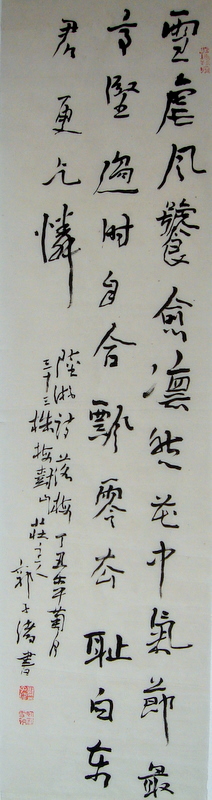 雪虐风饕愈凛然花中气节最
高坚过时自合飘零去耻向东
君更乞怜
陆游诗落梅 丁丑年菊月
三十三株梅封山庄主人
郭子绪书